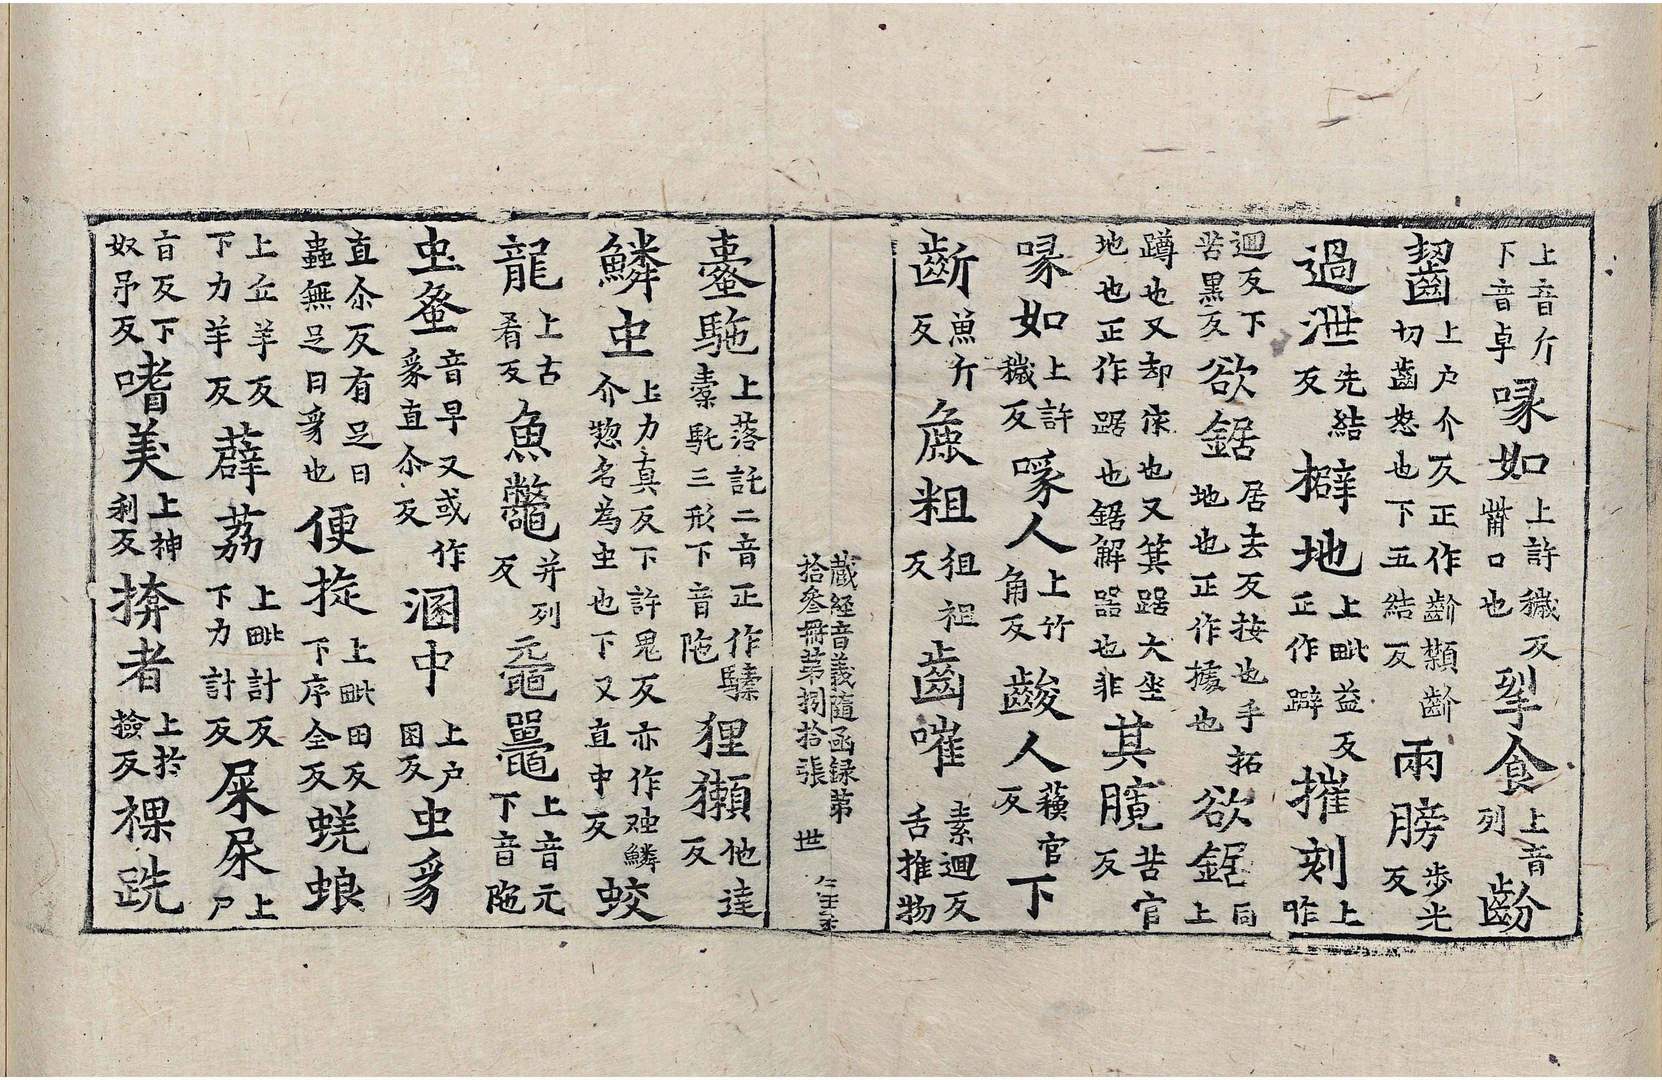 上音斤下音卓喙如上許穢反觜口也㓨食上音列齘
齧上戶介反正作齘䫴齘切齒怒也下五結反兩膀步光反
過泄先結反擗地上毗益反正作躃摧刻上昨
迴反下苦黑反欲鋸居去反按也手拓地也正作據也欲鋸上同
蹲也又却㳄也又箕踞大坐地也正作踞也鋸解器也非其臗苦官反
喙如上許穢反喙人上竹角反齩人蘓官反下
齗魚斤反麁粗徂祖反齒嗺素迴反舌推物
藏經音義隨函録第拾叅冊第捌拾張 世
橐駞上落託二音正作驝橐馲三形下音陁狸獺他達反
鱗虫上力真反下許鬼反亦作䖝鱗介惣名為虫也下又直中反蛟
龍上古肴反魚鼈并列反黿鼉上音元下音陁
虫蚤音早又或作豸直尒反溷中上戶困反虫豸
直尒反有足曰蟲無足曰豸也便旋上毗田反下序全反蜣蜋
上丘羊反下力羊反薜荔上毗計反下力計反屎尿上尸
旨反下奴弔反嗜美上神利反揜者上於撿反裸跣